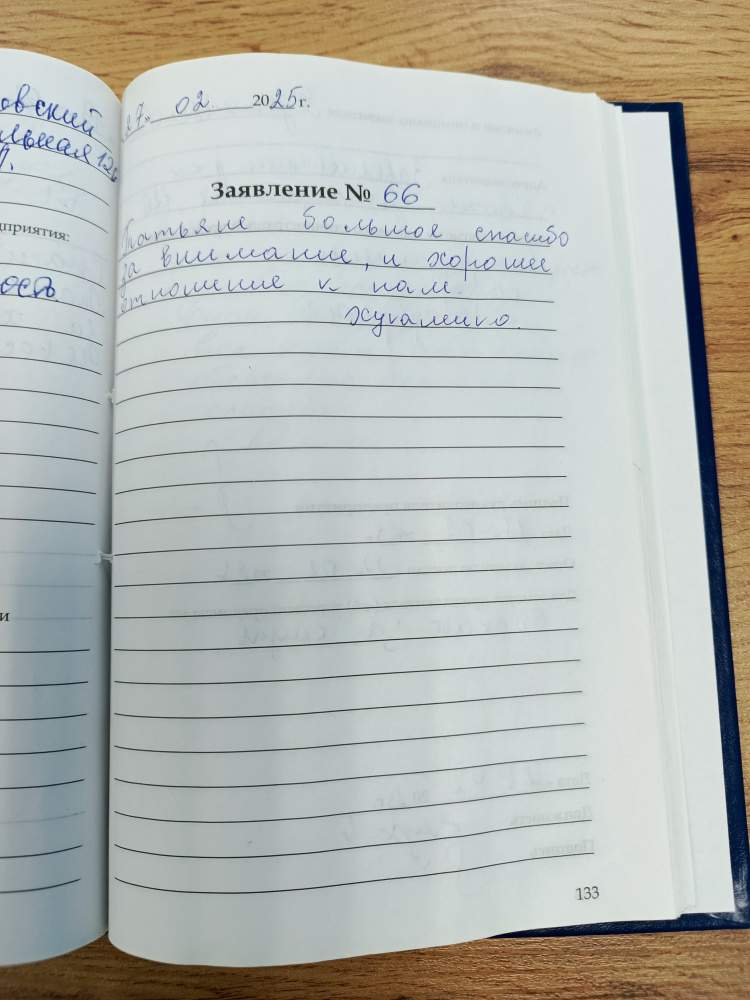 овский
льная 126
дприятия:
ость
и
27. 02. 2025 г.
Заявление № 66
Татьяне большое спасибо
за внимание, и хорошее
отношение к нам.
133